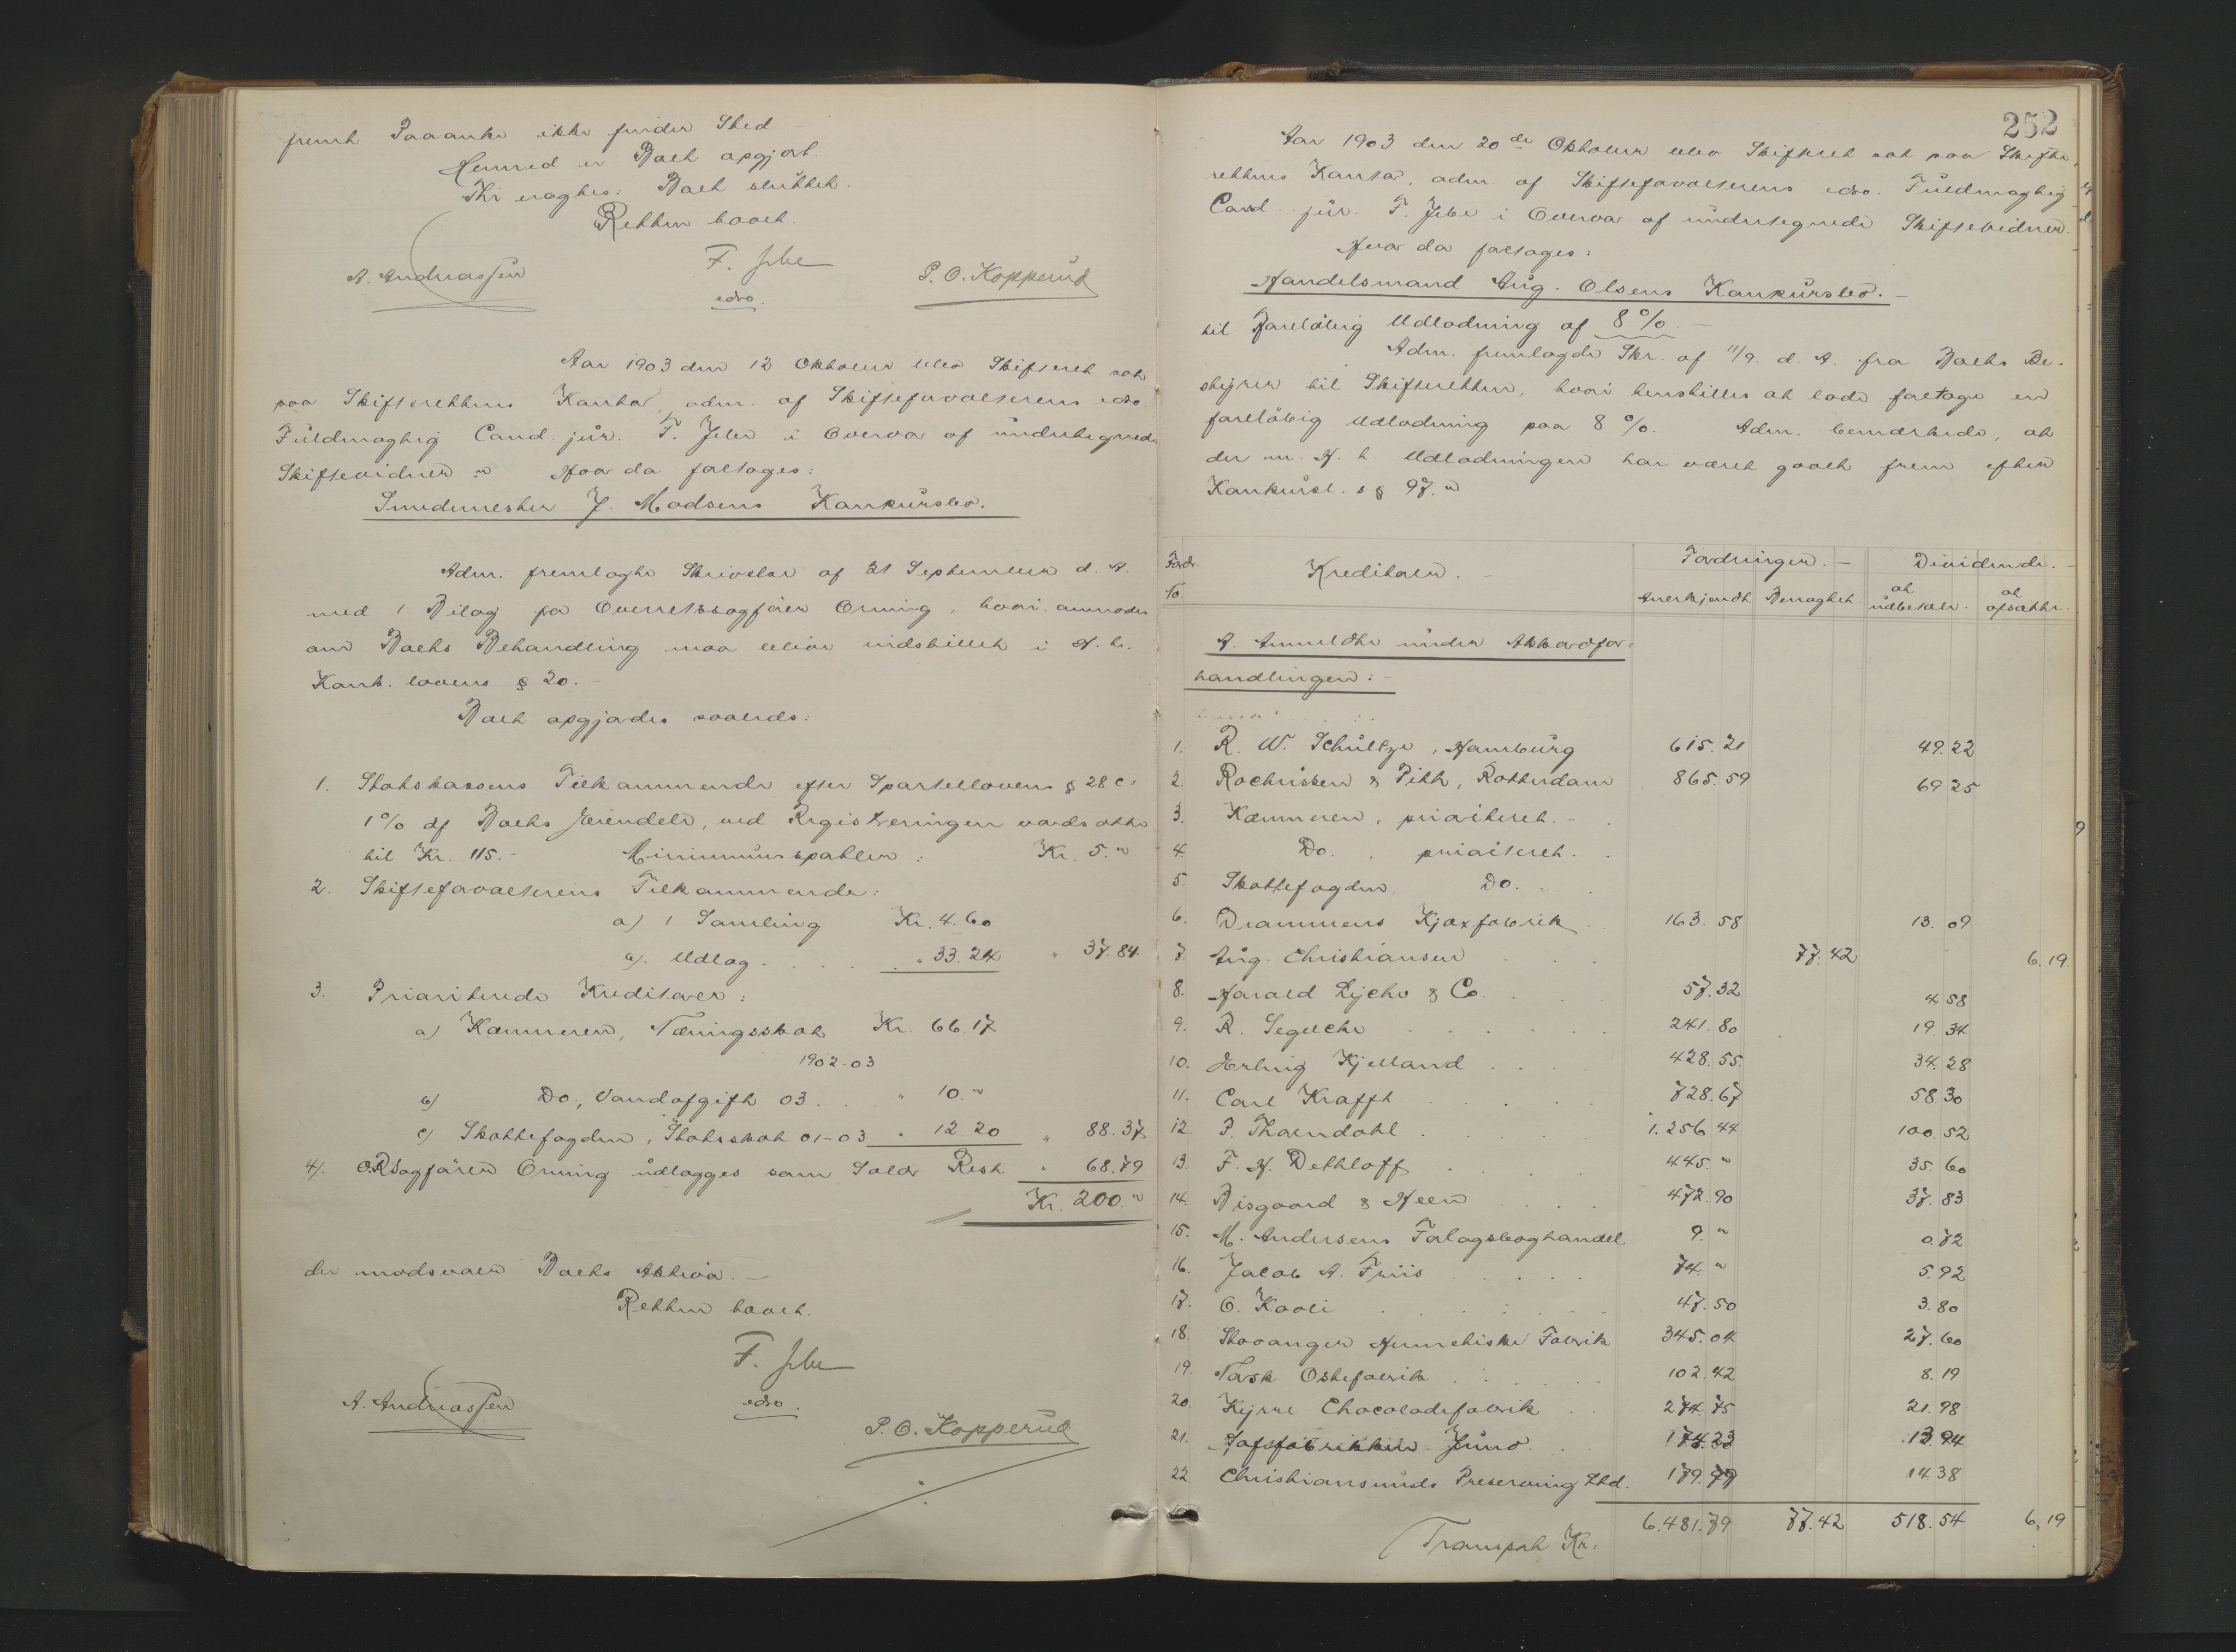 fremt Paaanke ikke finder Sted
Hermed er Boet opgjort.
Thi eragtes: Boet sluttet.
Retten hævet.
A. Andreassen
F. Jebe
edso.
P. O. Kopperud
Aar 1903 den 12 Oktober blev Skifteret sat
paa Skifterettens Kontor, adm. af Skifteforvalterens edso.
Fuldmægtig Cand. jur. F. Jebe i Overvær af undertegnede
Skiftevidner " Hvor da foretages:
Smedemester J. Madsens Konkursbo.
Adm. fremlagte Skrivelse af 21 September d. A.
med 1 Bilag fra Overretssagfører Orning, hvori anmodes
om Boets Behandling maa blive indstillet i H. t.
Konk. lovens § 20.-
Boet opgjordes saaleds:
1. Statskassens Tilkommende efter Sportellovens § 28 c:
1% af Boets Eiendele, ved Registreringen værdsatte
til Kr. 115.- Minimumssportler: Kr. 5."
2. Skifteforvalterens Tilkommende:
a) 1 Samling Kr. 4.60
b). Udlæg . . . . " 33.24 " 37.84
3. Prioriterede Kreditorer:
a) Kæmneren, Næringsskat Kr. 66.17
1902-03
b) Do., Vandafgift 03 . . " 10."
c) Skattefogden, Statsskat 01-03 " 12 20 " 88.37
4). O.R.Sagfører Orning udlægges som Salær Rest " 68.79
Kr. 200."
der modsvarer Boets Aktiva.-
Retten hævet.
F. Jebe
A. Andreassen
edso.
P. O. Kopperud
252
Aar 1903 den 20de Oktober blev Skifteret sat paa Skifte,
rettens Kontor, adm. af Skifteforvalterens edso. Fuldmægtig
Cand. jur. F. Jebe i Overvær af undertegnede Skiftevidner.
Hvor da foretages:
Handelsmand Aug. Olsens Konkursbo.-
til Foreløbig Udlodning af 8%.-
Adm. fremlagde Skr. af 11/9. d. A. fra Boets Be-
styrer til Skifteretten, hvori henstilles at lade foretage en
foreløbig Udlodning paa 8%. Adm. bemærkede, at
der m. H. t. Udlodningen har været gaaet frem efter
Konkursl. s § 97."
Fordr. Kreditorer.- Fordringer.- Dividende.-
No Anerkjendt Benægtet at udbetaler. at afsætte.
A. Anmeldte under Akkordfor=
handlingen:-
1. R. W. Schultze, Hamburg 615.21 49.22
2. Rochussen & Pith, Rotterdam 865.59 69 25
3. Kæmneren, prioriteret.-
4. Do. prioriteret.
5. Skattefogden Do.
6. Drammens Kjæxfabrik 163.58 13.09
7. Aug. Christiansen 77.42 6.19
8. Harald Lycho & Co. 57.32 4 58
9. R. Segelcke 241.80 19.34
10. Herlnig Kjelland 428.55. 34.28
11. Carl Krafft 728.67 58.30
12. P. Thorndahl 1.256 44 100 52
13. F. H. Dethloff 445." 35.60
14. Bisgaard & Heen 472.90 37.83
15. M. Andersens Forlagsboghandel 9." 0.72
16. Jacob A. Friis 74." 5.92
17. O. Kavli 47.50 3.80
18. Stavanger Hermetiske Fabrik 345.04 27.60
19. Task Ostefabrik 102.42 8.19
20. Kiyrre Chocoladefabrik 274.75 21.98
21. Saftfabrikken Juno 174.23 13.94
22 Christiansunds Preserving Ltd. 179.79 14.38
Transport Kr: 6.481.79 77.42 518.54 6,19